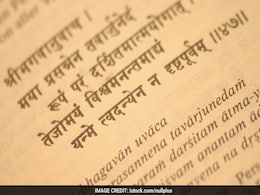 श्रीभगवानुवाच ।
मया प्रसन्नेन तवार्जुनेदं
रूपं परं दर्शितमात्मयोगात् ।
तेजोमयं विश्वमनन्तमाद्यं
यन्मे त्वदन्येन न दृष्टपूर्वम् ॥४७॥
hagavān uvāca
rasannena tavārjunedaṁ
darśitam ātma-y
anantam
na
Pers
IMAGE CREDIT: istock.com/nullplus